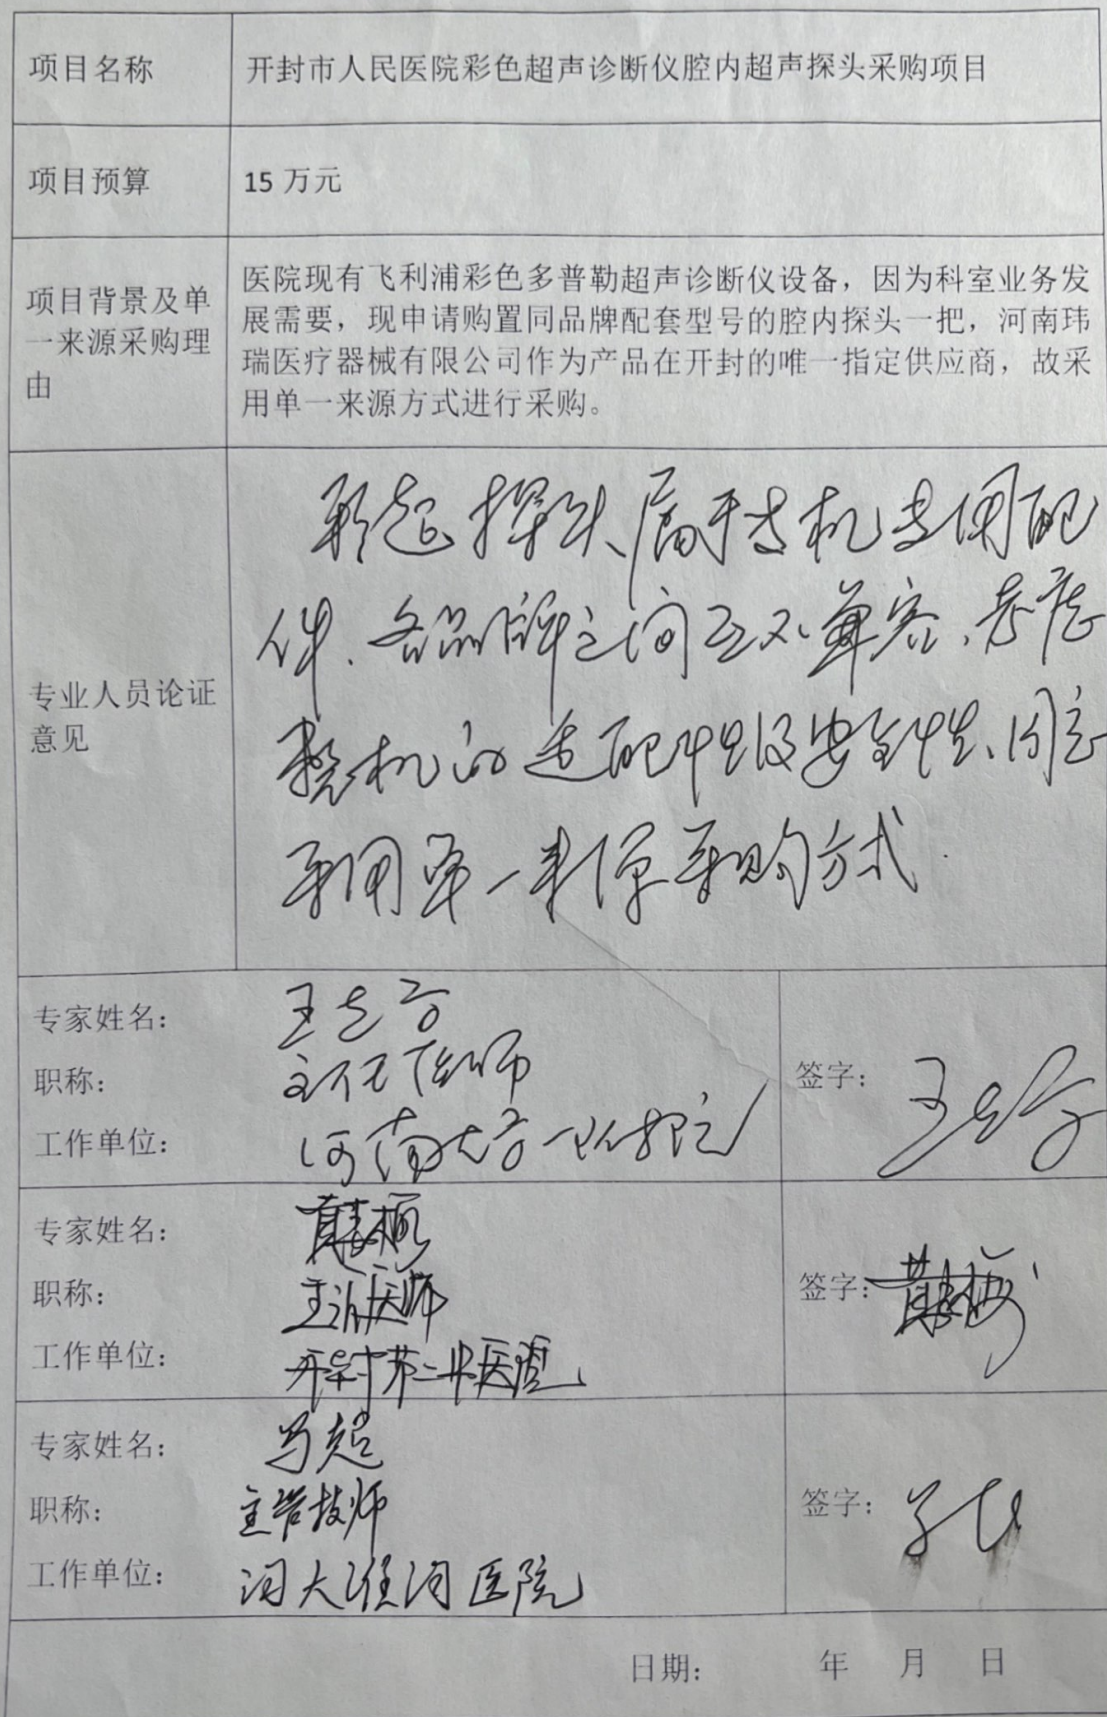 项目名称
开封市人民医院彩色超声诊断仪腔内超声探头采购项目
项目预算
15 万元
项目背景及单
一来源采购理
由
医院现有飞利浦彩色多普勒超声诊断仪设备，因为科室业务发
展需要，现申请购置同品牌配套型号的腔内探头一把，河南玮
瑞医疗器械有限公司作为产品在开封的唯一指定供应商，故采
用单一来源方式进行采购。
专业人员论证
意见
彩超探头属于专机专用配
件、各品牌之间互不兼容、考虑
整机的适配性及安全性、同意
采用单一来源采购方式.
专家姓名：
职称：
主任医师
工作单位：
河南大学一附院
签字：
专家姓名：
职称：
主治医师
工作单位：
开封第二中医院
签字：
专家姓名：
马超
职称：
主管技师
工作单位：
河大淮河医院
签字：
马超
日期： 年 月 日